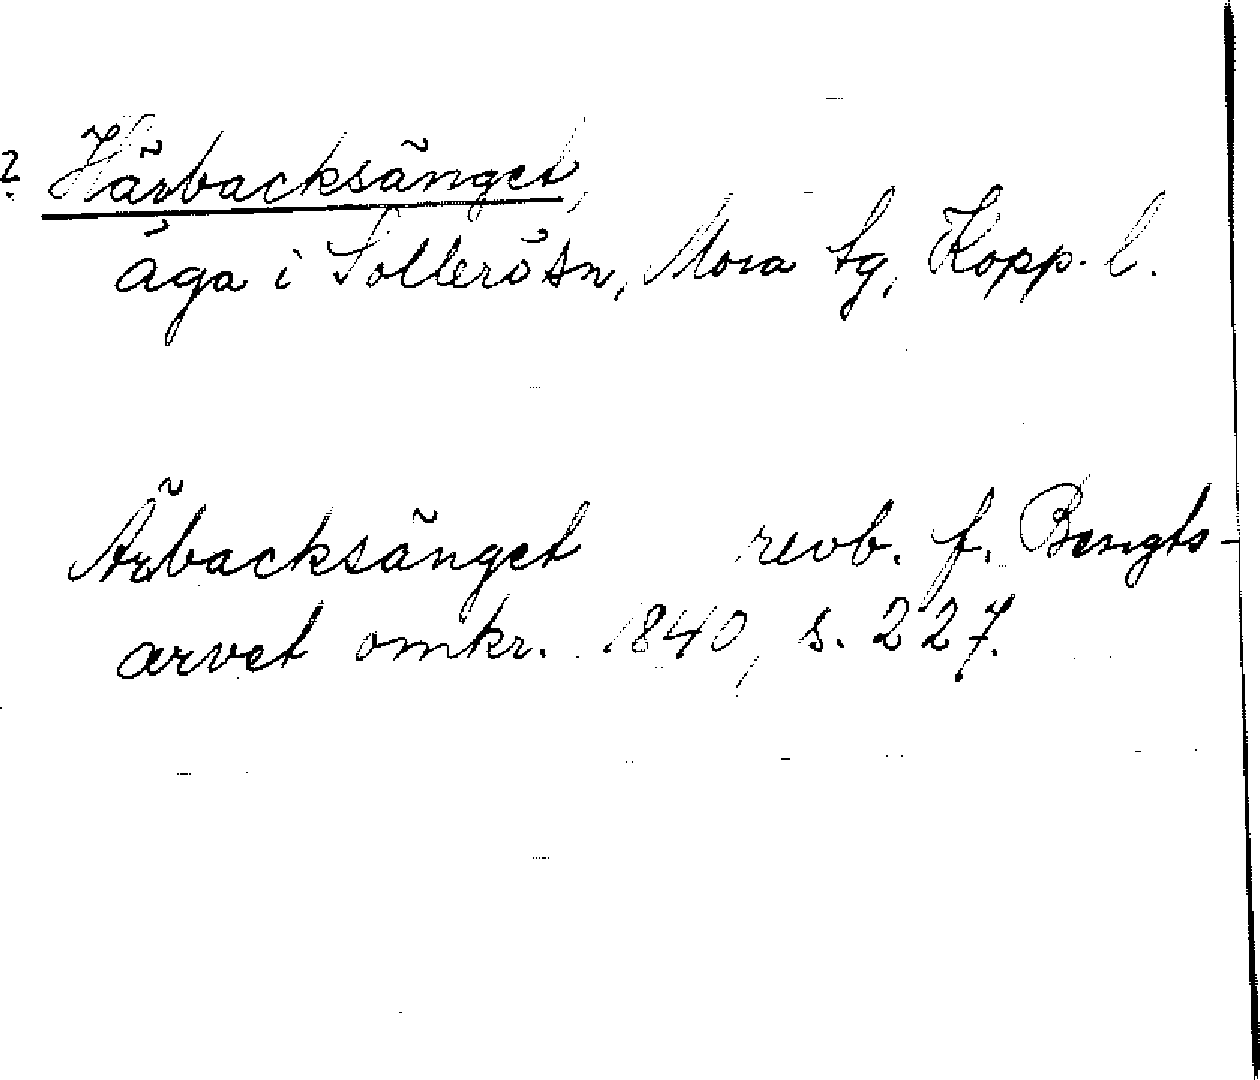 ? Härbacksänget,
äga i Sollerö sn, Mora tg, Kopp. l.
Ärbacksänget revb. f. Bengts-
arvet omkr. 1840, s. 227.